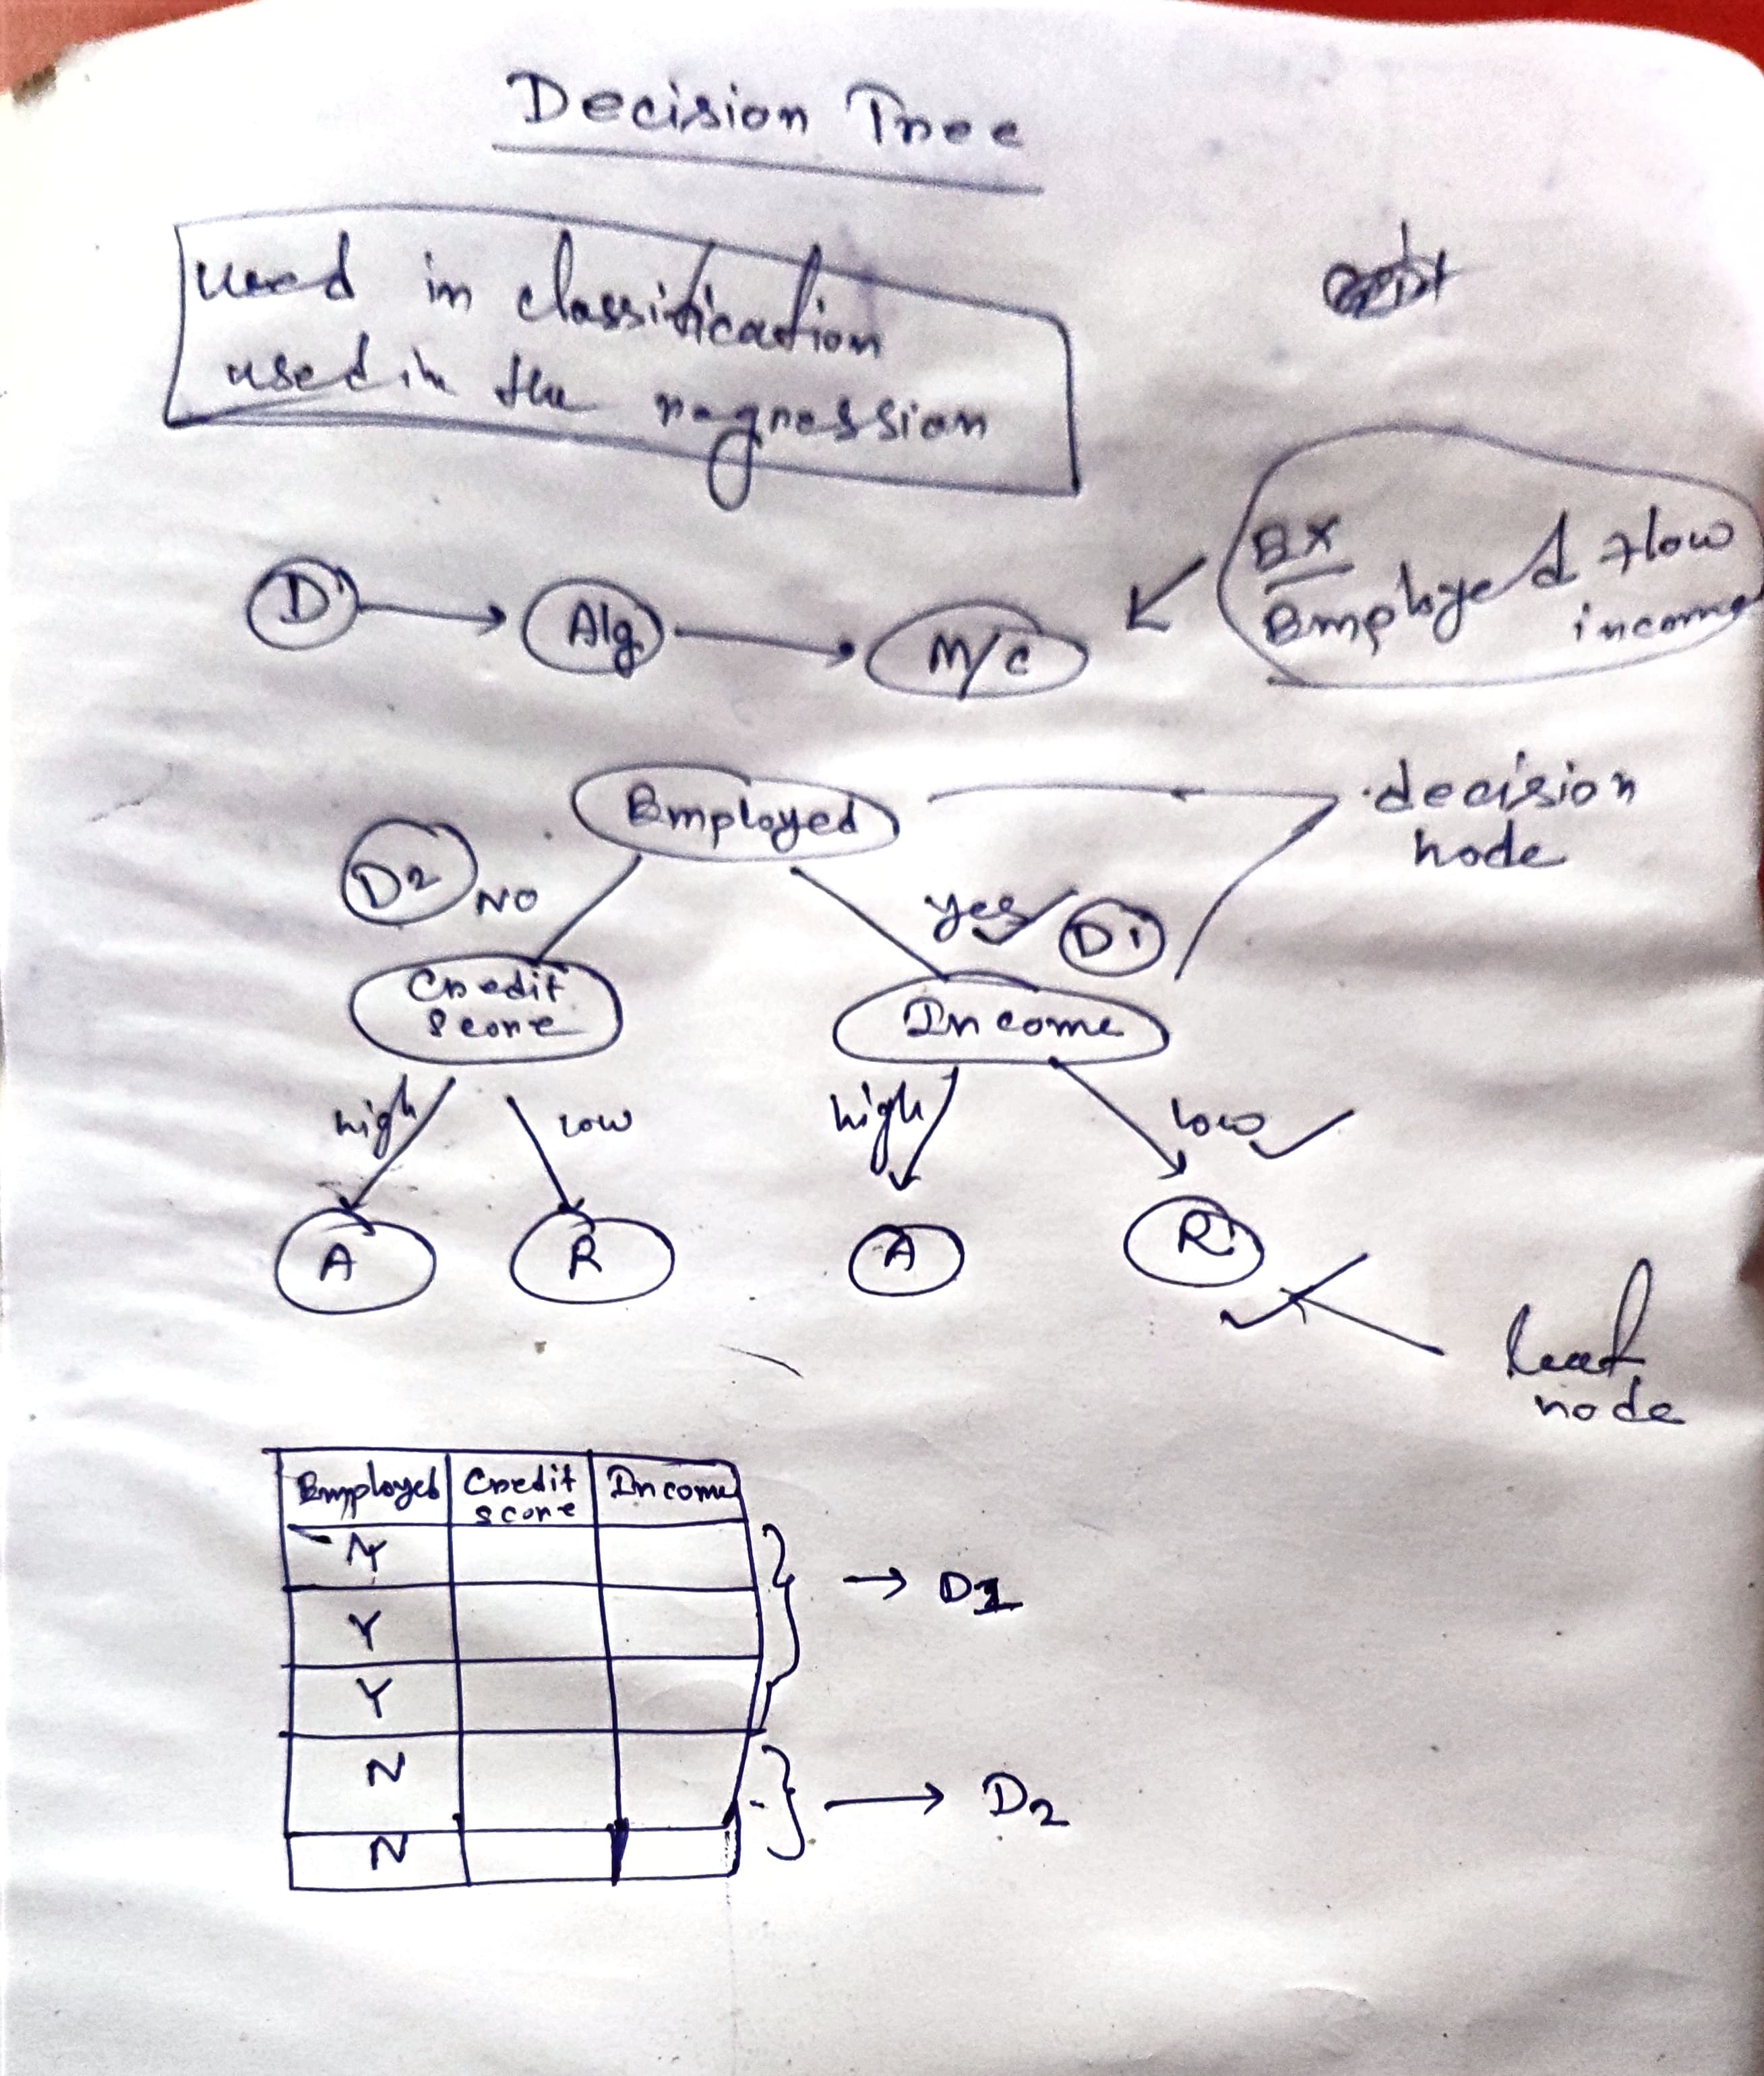 Decision Tree
used in classification
used in the regression
D → Alg → M/C
EX
Employed & low
income
Employed
decision
node
D2 NO
yes D1
Credit
score
Income
high low
high low
A R A R
leaf
node
Employed Credit score Income
Y
Y
Y
N
N
→ D1
→ D2